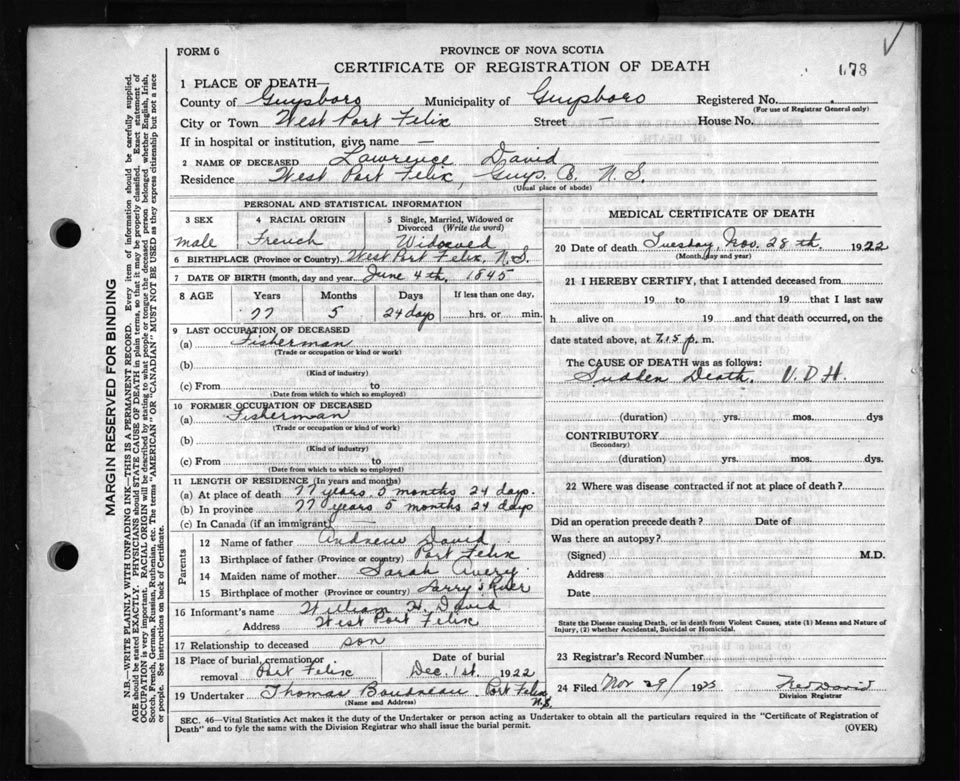 FORM 6
PROVINCE OF NOVA SCOTIA
CERTIFICATE OF REGISTRATION OF DEATH
178
1 PLACE OF DEATH—
County of Guysboro Municipality of Guysboro Registered No.
(For use of Registrar General only)
City or Town West Port Felix Street — House No.
If in hospital or institution, give name —
2 NAME OF DECEASED Lawrence David
Residence West Port Felix, Guys. Co. N. S.
(Usual place of abode)
PERSONAL AND STATISTICAL INFORMATION
3 SEX 4 RACIAL ORIGIN 5 Single, Married, Widowed or Divorced (Write the word)
male French Widowed
6 BIRTHPLACE (Province or Country) West Port Felix, N.S.
7 DATE OF BIRTH (month, day and year) June 4th, 1845
8 AGE Years Months Days If less than one day,
77 5 24 days hrs. or min.
9 LAST OCCUPATION OF DECEASED
(a) Fisherman
(Trade or occupation or kind or work)
(b)
(Kind of industry)
(c) From to
(Date from which to which so employed)
10 FORMER OCCUPATION OF DECEASED
(a) Fisherman
(Trade or occupation or kind of work)
(b)
(Kind of industry)
(c) From to
(Date from which to which so employed)
11 LENGTH OF RESIDENCE (In years and months)
(a) At place of death 77 years. 5 months 24 days.
(b) In province 77 years 5 months 24 days
(c) In Canada (if an immigrant) —
Parents
12 Name of father Andrew David
13 Birthplace of father (Province or country) Port Felix
14 Maiden name of mother Sarah Avery
15 Birthplace of mother (Province or country) Larry's River
16 Informant's name William H. David
Address West Port Felix
17 Relationship to deceased son
18 Place of burial, cremation or removal Port Felix Date of burial Dec. 1st. 1922
19 Undertaker Thomas Boudreau Port Felix N.S.
(Name and Address)
MEDICAL CERTIFICATE OF DEATH
20 Date of death Tuesday, Nov. 28th. 1922
(Month, day and year)
21 I HEREBY CERTIFY, that I attended deceased from
19 to 19 that I last saw
h alive on 19 and that death occurred, on the
date stated above, at 7.15 p. m.
The CAUSE OF DEATH was as follows:
Sudden Death. V. D. H.
(duration) yrs. mos. dys
CONTRIBUTORY
(Secondary)
(duration) yrs. mos. dys.
22 Where was disease contracted if not at place of death?
Did an operation precede death? Date of
Was there an autopsy?
(Signed) M.D.
Address
Date
State the Disease causing Death, or in death from Violent Causes, state (1) Means and Nature of
Injury, (2) whether Accidental, Suicidal or Homicidal.
23 Registrar's Record Number
24 Filed Nov 29/ 1922 David
Division Registrar
SEC. 46—Vital Statistics Act makes it the duty of the Undertaker or person acting as Undertaker to obtain all the particulars required in the "Certificate of Registration of
Death" and to fyle the same with the Division Registrar who shall issue the burial permit.
(OVER)
MARGIN RESERVED FOR BINDING
N.B.—WRITE PLAINLY WITH UNFADING INK—THIS IS A PERMANENT RECORD. Every item of information should be carefully supplied.
AGE should be stated EXACTLY. PHYSICIANS should STATE CAUSE OF DEATH in plain terms, so that it may be properly classified. Exact statement of
OCCUPATION is very important. RACIAL ORIGIN will be described by stating to what people or tongue the deceased person belonged whether English, Irish,
Scotch, French, German, Russian, Ruthenian, etc. The terms "AMERICAN" OR "CANADIAN" MUST NOT BE USED as they express citizenship but not a race
or people. See instructions on back of Certificate.